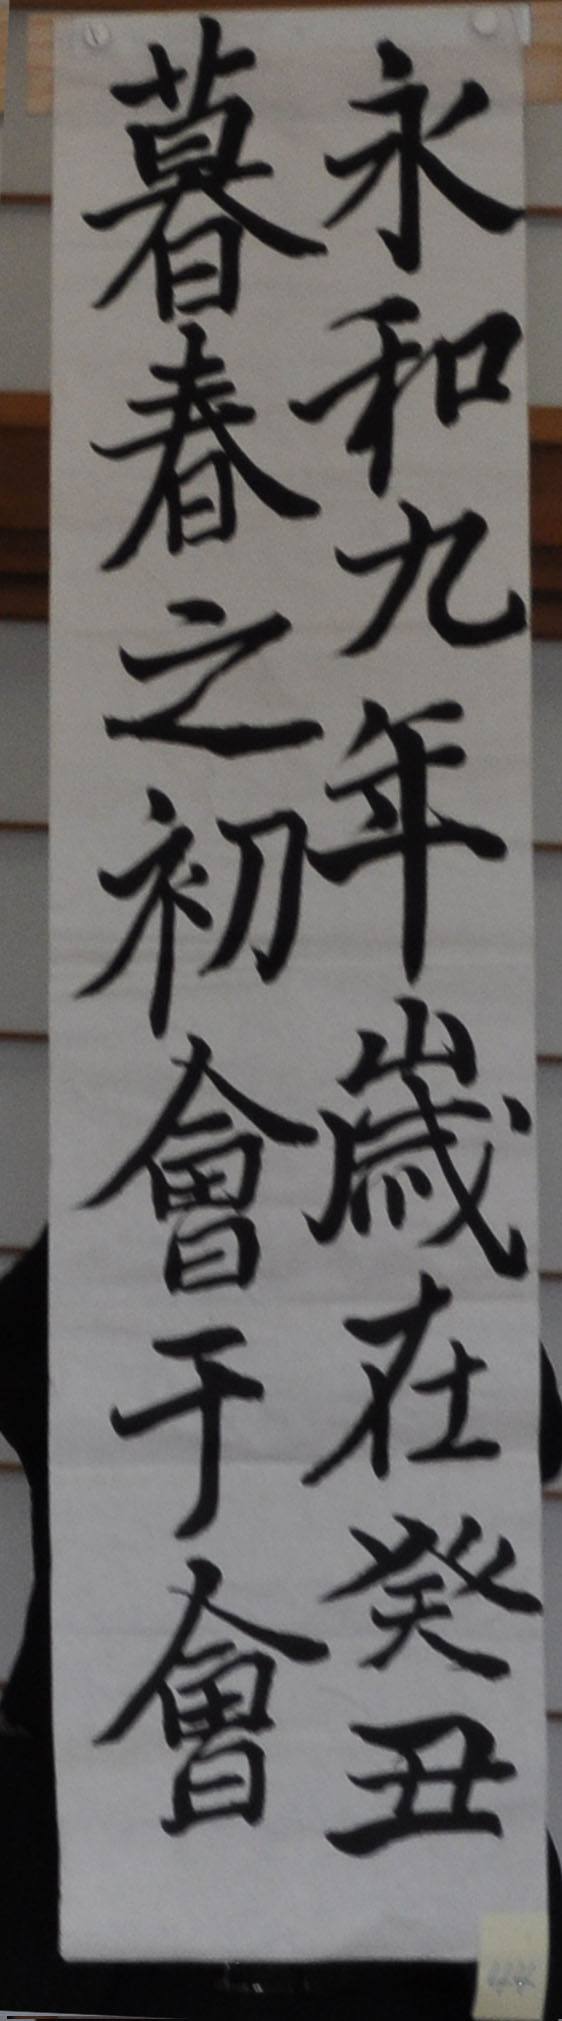 永和九年歳在癸丑
暮春之初會于會